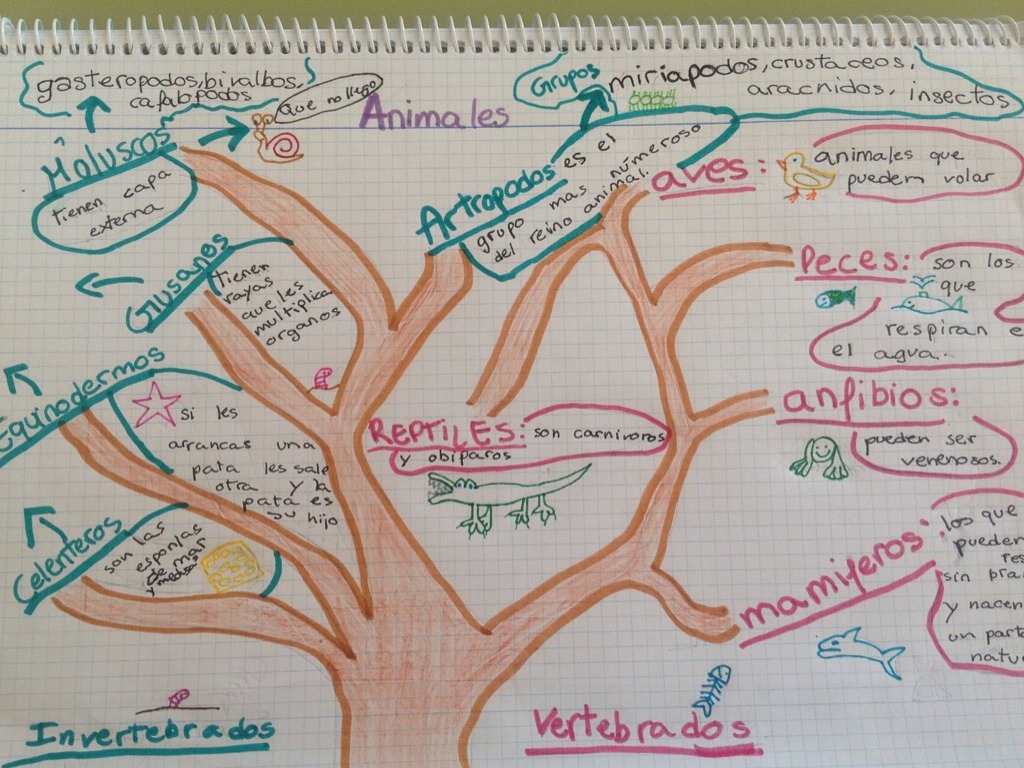 gasteropodos, bivalbos,
cafalopodos
Que no llego
Animales
Grupos
miriapodos, crustaceos,
aracnidos, insectos
Moluscos
tienen capa
externa
Artropodos es el
grupo mas númeroso
del reino animal.
aves:
animales que
pueden volar
Gusanos
Tienen
rayas
que les
multiplica
organos
Peces: son los
que
respiran e
el agua.
Equinodermos
si les
arrancas una
pata les sale
otra y la
pata es
su hijo
REPTILES: son carnivoros
y obiparos
anfibios:
pueden ser
venenosos.
Celenteros
son las
esponjas
de mar
y medusas
mamiferos:
los que
pueden
res
sin bra
y nacen
un part
natu
Invertebrados
Vertebrados